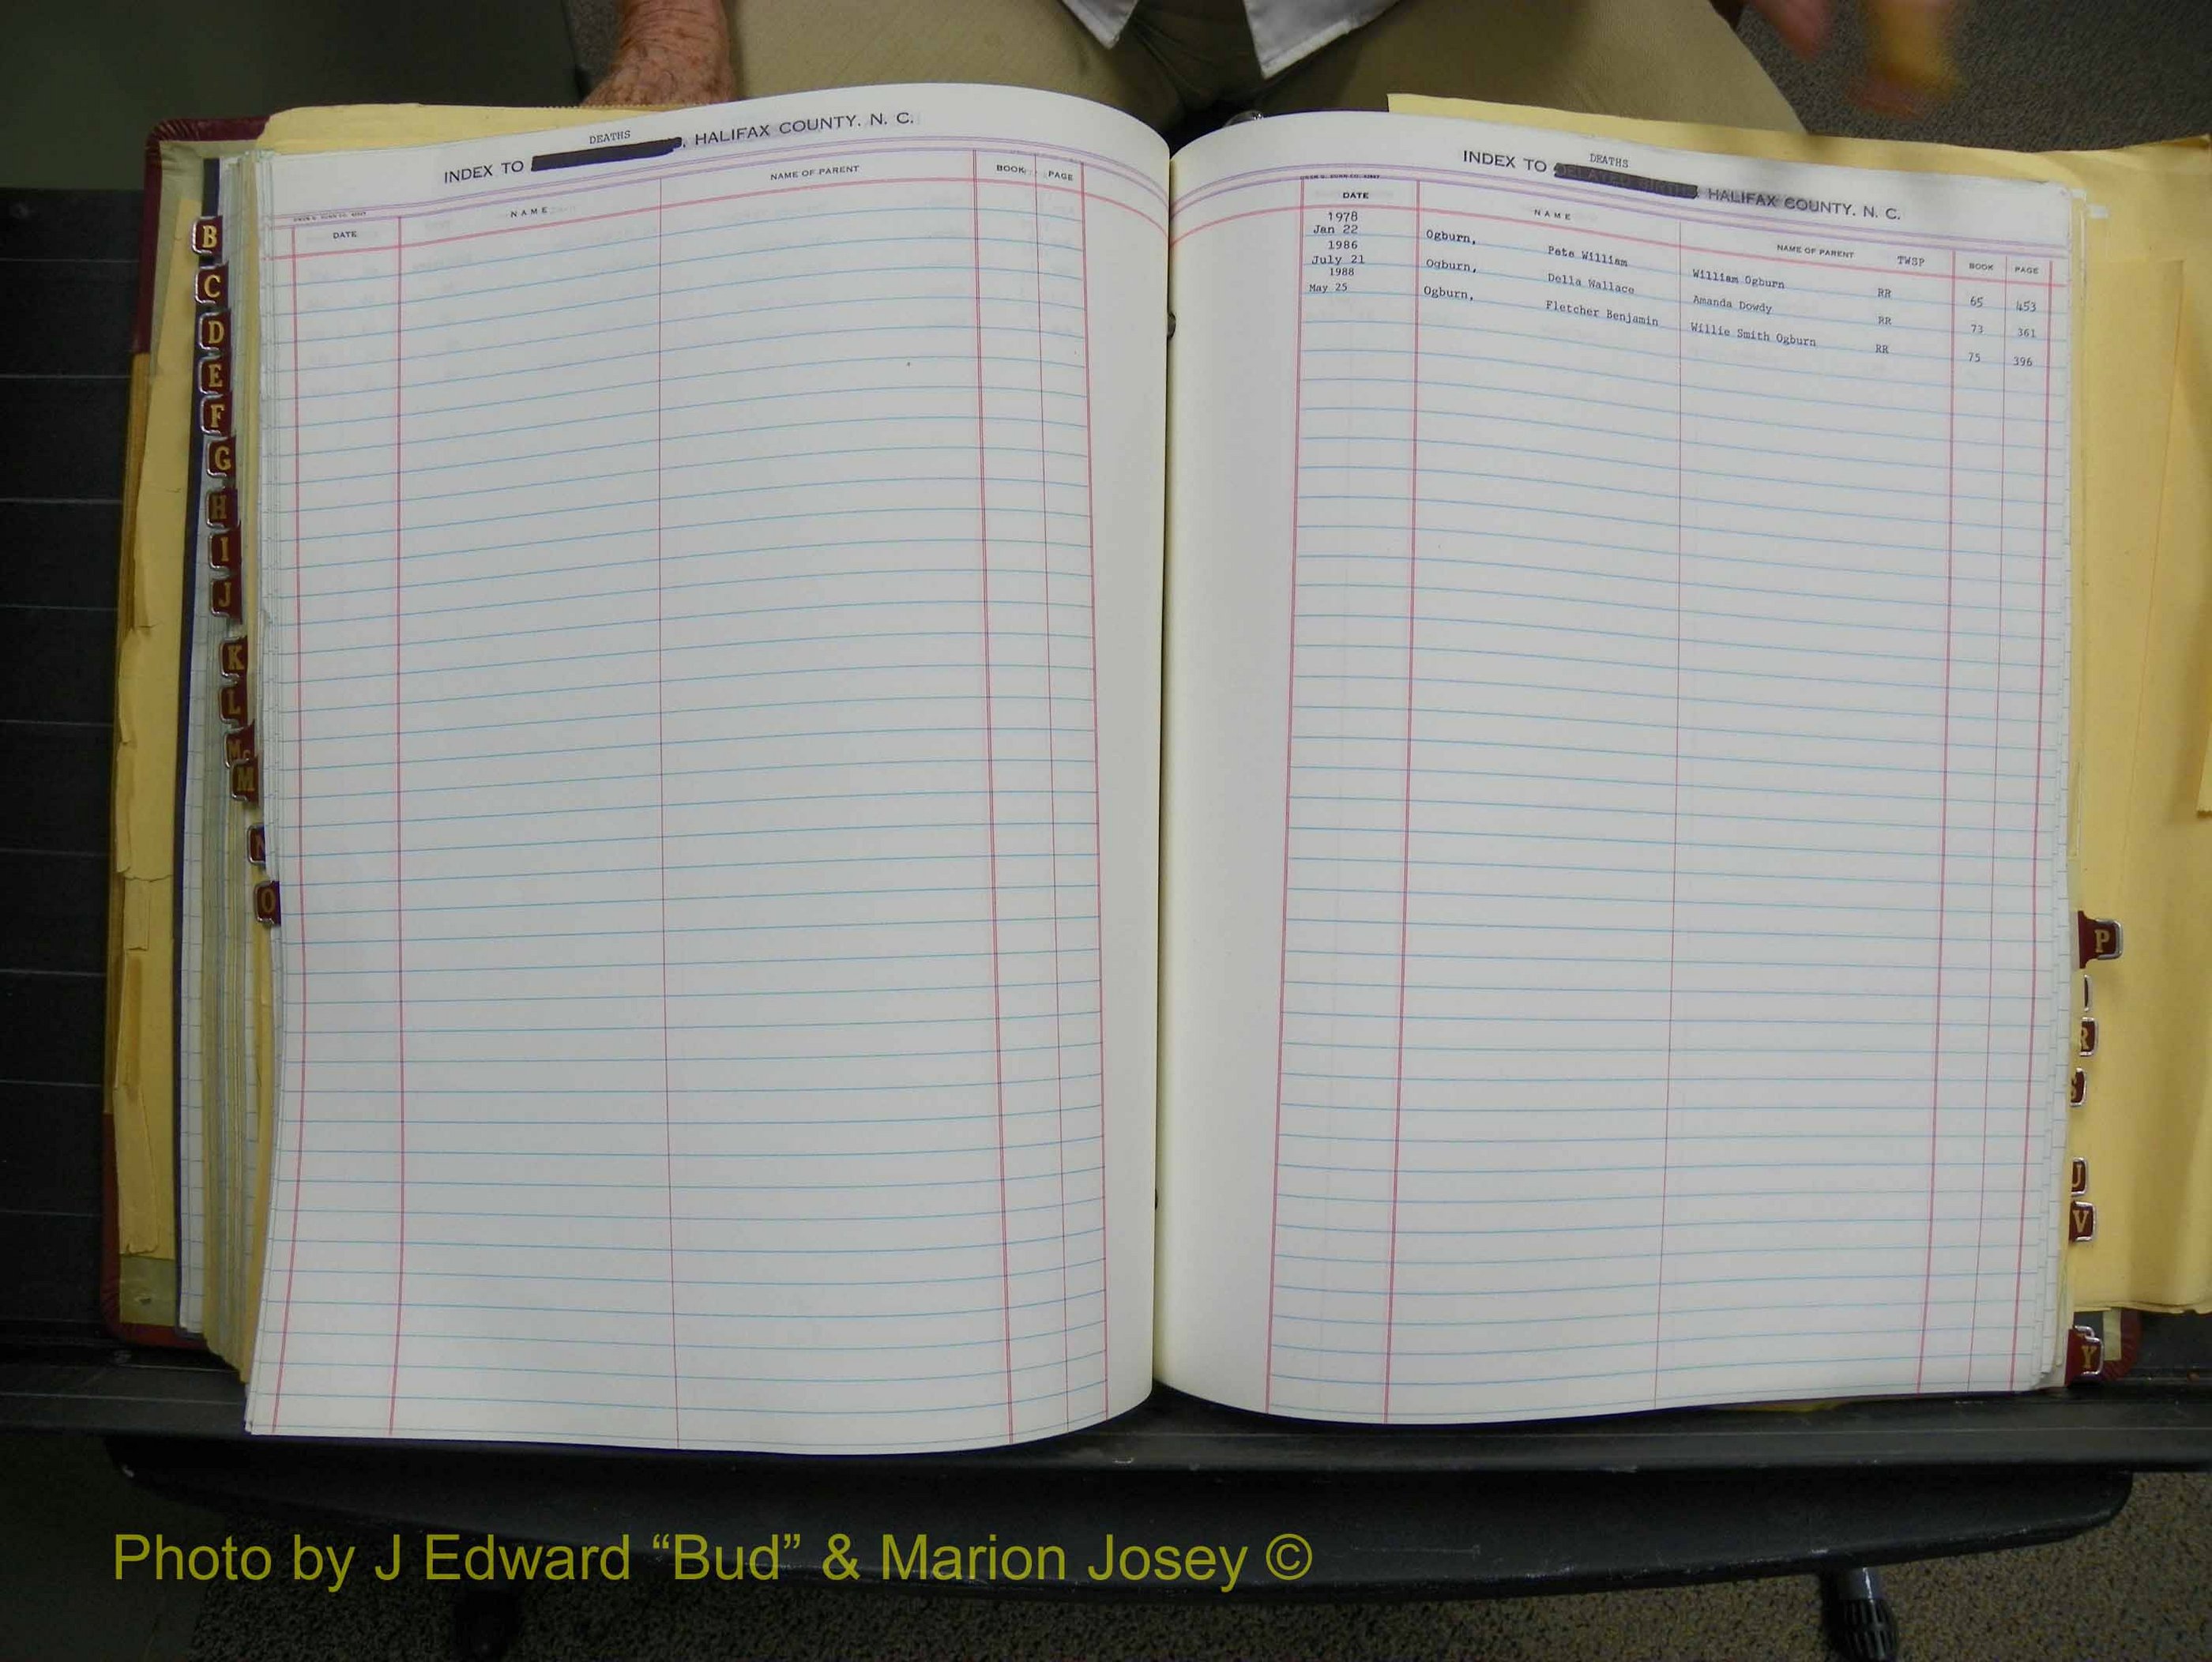 DEATHS
INDEX TO , HALIFAX COUNTY. N. C.
DATE NAME NAME OF PARENT BOOK PAGE
DEATHS
INDEX TO DELAYED BIRTHS, HALIFAX COUNTY. N. C.
DATE NAME NAME OF PARENT TWSP BOOK PAGE
1978
Jan 22 Ogburn, Pete William William Ogburn RR 65 453
1986
July 21 Ogburn, Della Wallace Amanda Dowdy RR 73 361
1988
May 25 Ogburn, Fletcher Benjamin Willie Smith Ogburn RR 75 396
B
C
D
E
F
G
H
I
J
K
L
Mc
M
N
O
P
R
S
U
V
Y
Photo by J Edward “Bud” & Marion Josey ©